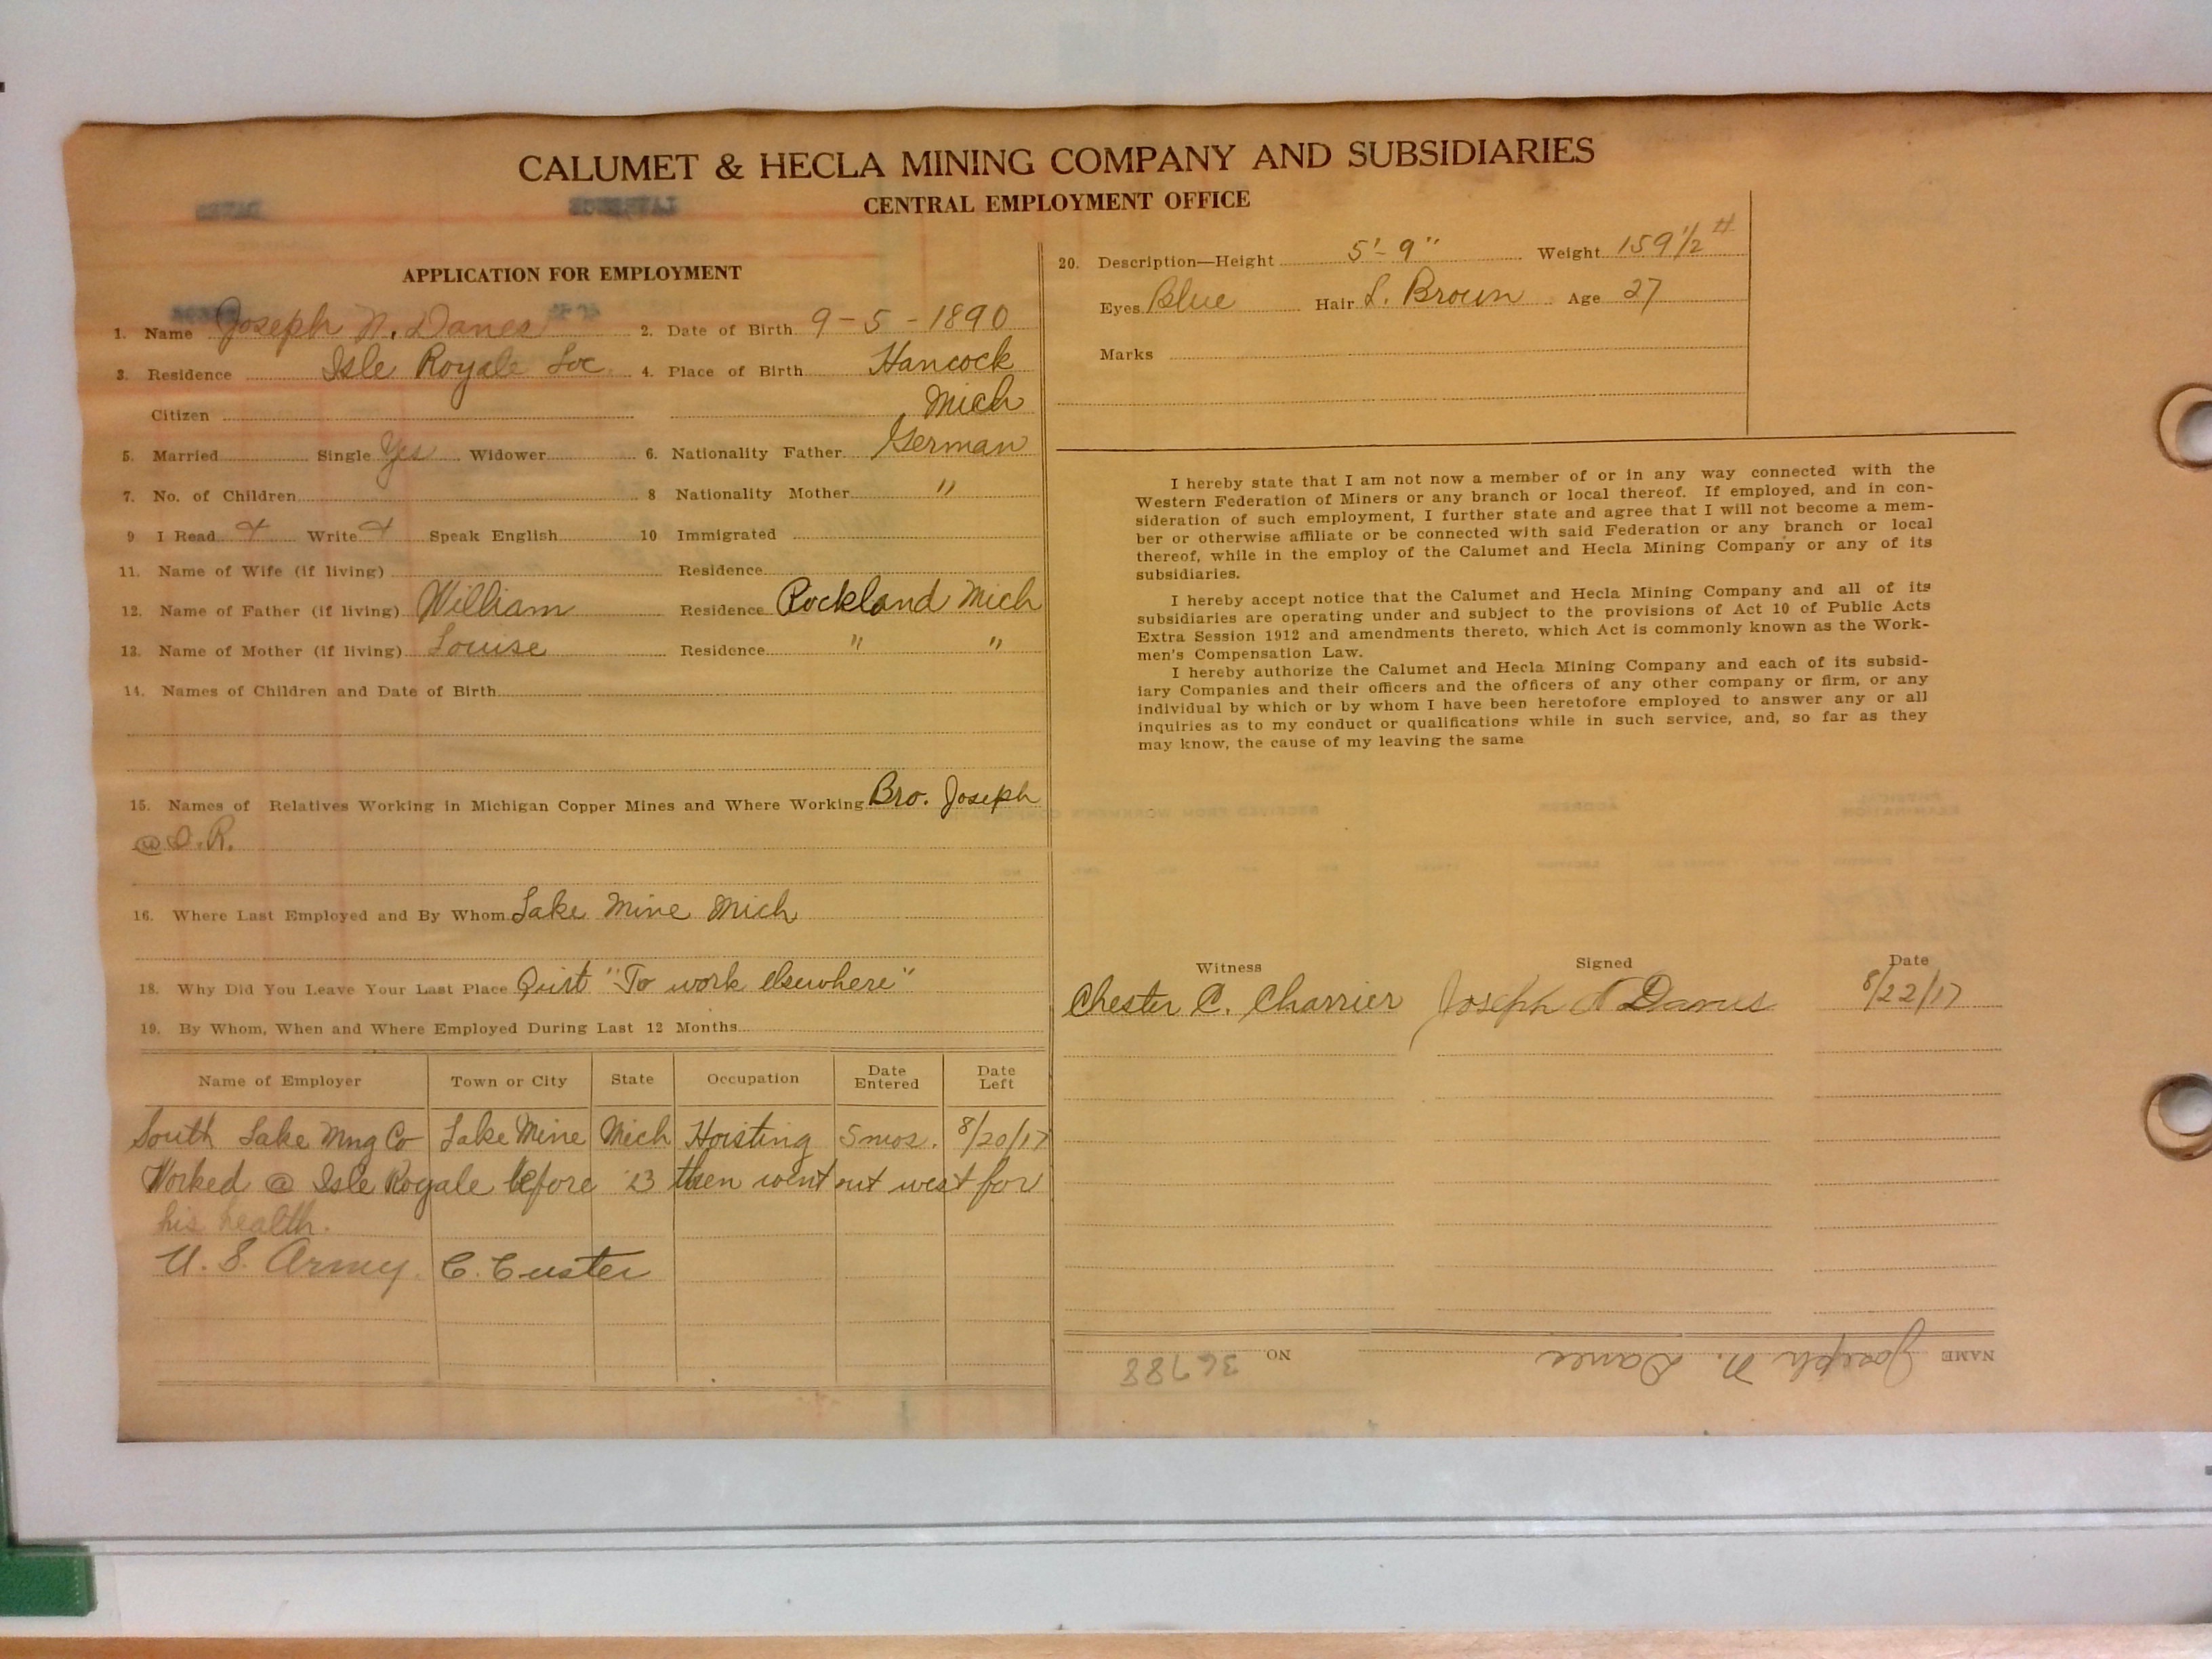 CALUMET & HECLA MINING COMPANY AND SUBSIDIARIES
CENTRAL EMPLOYMENT OFFICE
APPLICATION FOR EMPLOYMENT
1. Name Joseph N. Danes 2. Date of Birth 9-5-1890
3. Residence Isle Royale Loc 4. Place of Birth Hancock
Citizen Mich
5. Married Single Yes Widower 6. Nationality Father German
7. No. of Children 8 Nationality Mother "
9. I Read Write Speak English 10 Immigrated
11. Name of Wife (if living) Residence
12. Name of Father (if living) William Residence Rockland Mich
13. Name of Mother (if living) Louise Residence " "
14. Names of Children and Date of Birth
15. Names of Relatives Working in Michigan Copper Mines and Where Working Bro. Joseph
@ I.R.
16. Where Last Employed and By Whom Lake Mine Mich
18. Why Did You Leave Your Last Place Quit "To work elsewhere"
19. By Whom, When and Where Employed During Last 12 Months
Name of Employer Town or City State Occupation Date Entered Date Left
South Lake Mng Co Lake Mine Mich Hoisting 5 mos. 8/20/17
Worked @ Isle Royale before '13 then went out west for
his health.
U. S. Army. C. Custer
20. Description—Height 5'-9" Weight 159 1/2 #
Eyes Blue Hair L. Brown Age 27
Marks
I hereby state that I am not now a member of or in any way connected with the
Western Federation of Miners or any branch or local thereof. If employed, and in con-
sideration of such employment, I further state and agree that I will not become a mem-
ber or otherwise affiliate or be connected with said Federation or any branch or local
thereof, while in the employ of the Calumet and Hecla Mining Company or any of its
subsidiaries.
I hereby accept notice that the Calumet and Hecla Mining Company and all of its
subsidiaries are operating under and subject to the provisions of Act 10 of Public Acts
Extra Session 1912 and amendments thereto, which Act is commonly known as the Work-
men's Compensation Law.
I hereby authorize the Calumet and Hecla Mining Company and each of its subsid-
iary Companies and their officers and the officers of any other company or firm, or any
individual by which or by whom I have been heretofore employed to answer any or all
inquiries as to my conduct or qualifications while in such service, and, so far as they
may know, the cause of my leaving the same
Witness Signed Date
Chester C. Charrier Joseph N Danes 8/22/17
NAME Joseph N. Danes NO 36788